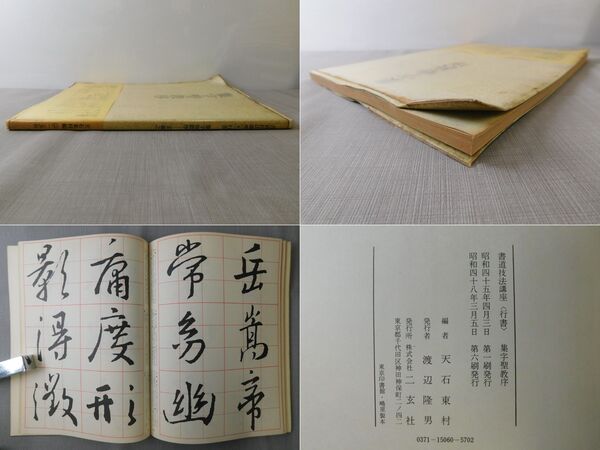 岳嵩帝
常幽
庸度形
影得微
書道技法講座〈行書〉 集字聖教序
昭和四十五年四月三日 第一刷発行
昭和四十八年三月五日 第六刷発行
編者 天石東村
発行者 渡辺隆男
発行所 株式会社 二玄社
東京都千代田区神田神保町二ノ四二
東京印書館・嶋原製本
0371-15060-5702